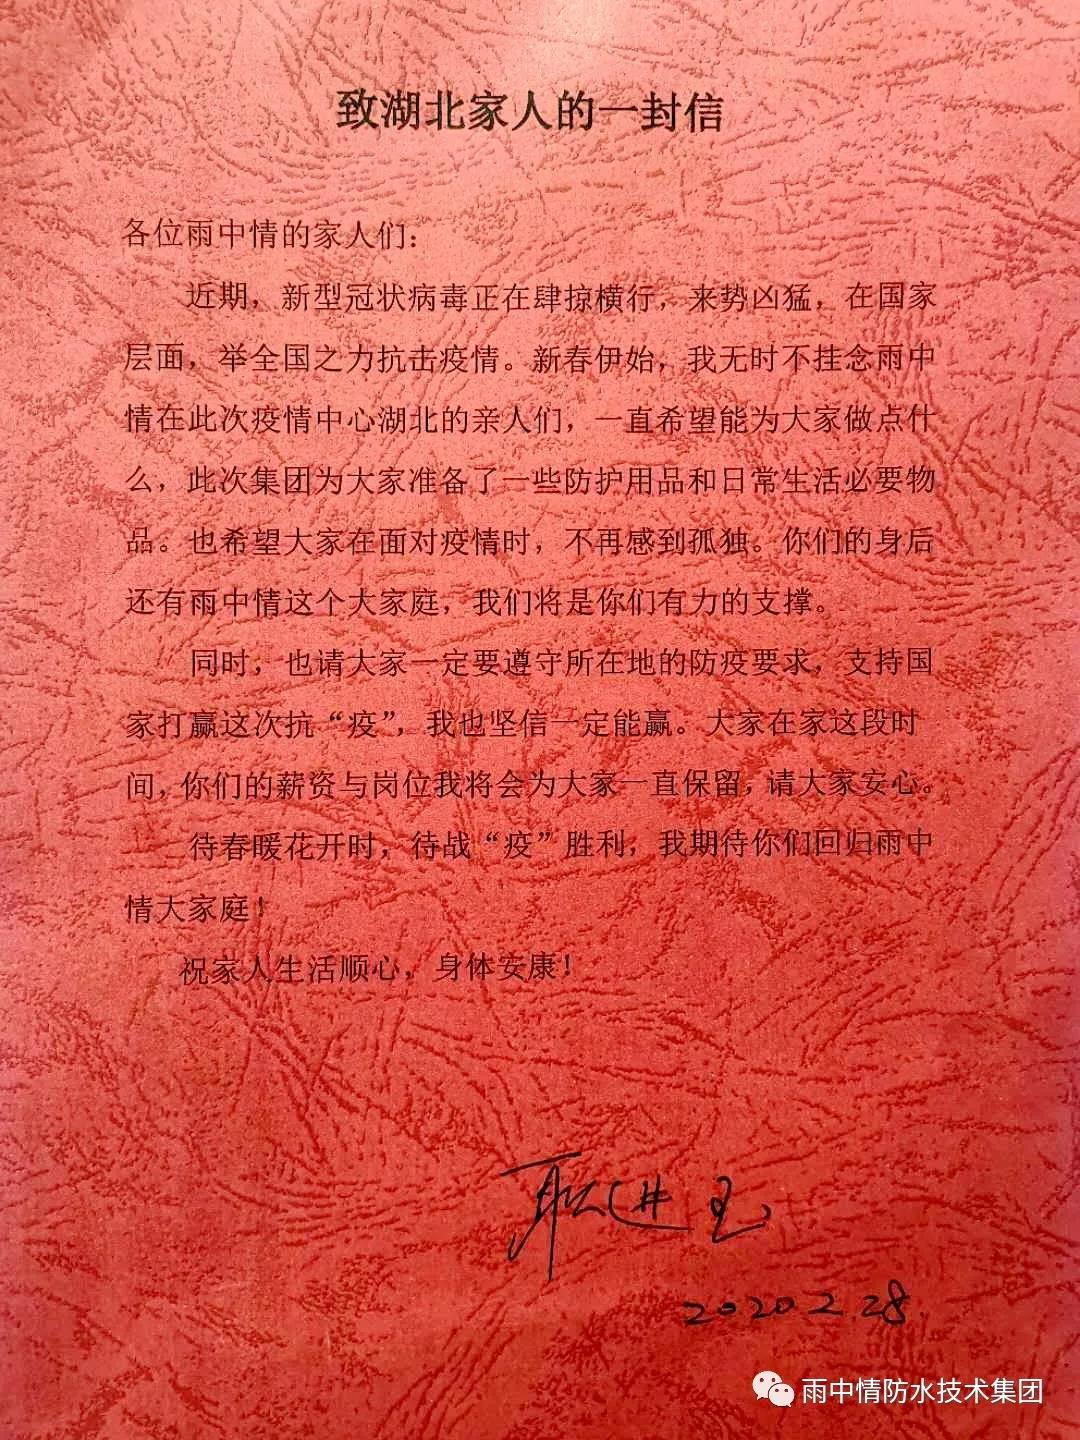 致湖北家人的一封信
各位雨中情的家人们：
近期，新型冠状病毒正在肆掠横行，来势凶猛，在国家
层面，举全国之力抗击疫情。新春伊始，我无时不挂念雨中
情在此次疫情中心湖北的亲人们，一直希望能为大家做点什
么，此次集团为大家准备了一些防护用品和日常生活必要物
品。也希望大家在面对疫情时，不再感到孤独。你们的身后
还有雨中情这个大家庭，我们将是你们有力的支撑。
同时，也请大家一定要遵守所在地的防疫要求，支持国
家打赢这次抗“疫”，我也坚信一定能赢。大家在家这段时
间，你们的薪资与岗位我将会为大家一直保留，请大家安心。
待春暖花开时，待战“疫”胜利，我期待你们回归雨中
情大家庭！
祝家人生活顺心，身体安康！
耿进玉
2020 2.28.
雨中情防水技术集团